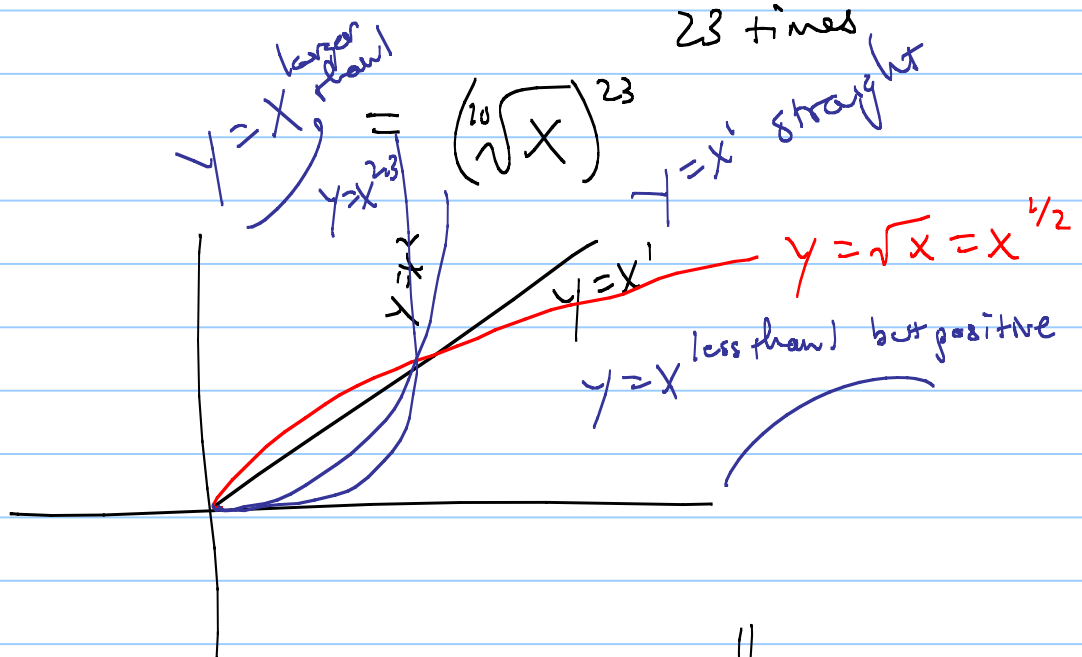 23 times
y = x^larger than 1
= (²⁰√x)^23
y = x^2.3
y = x' straight
y = x²
y = x'
y = √x = x^1/2
y = x^less than 1 but positive